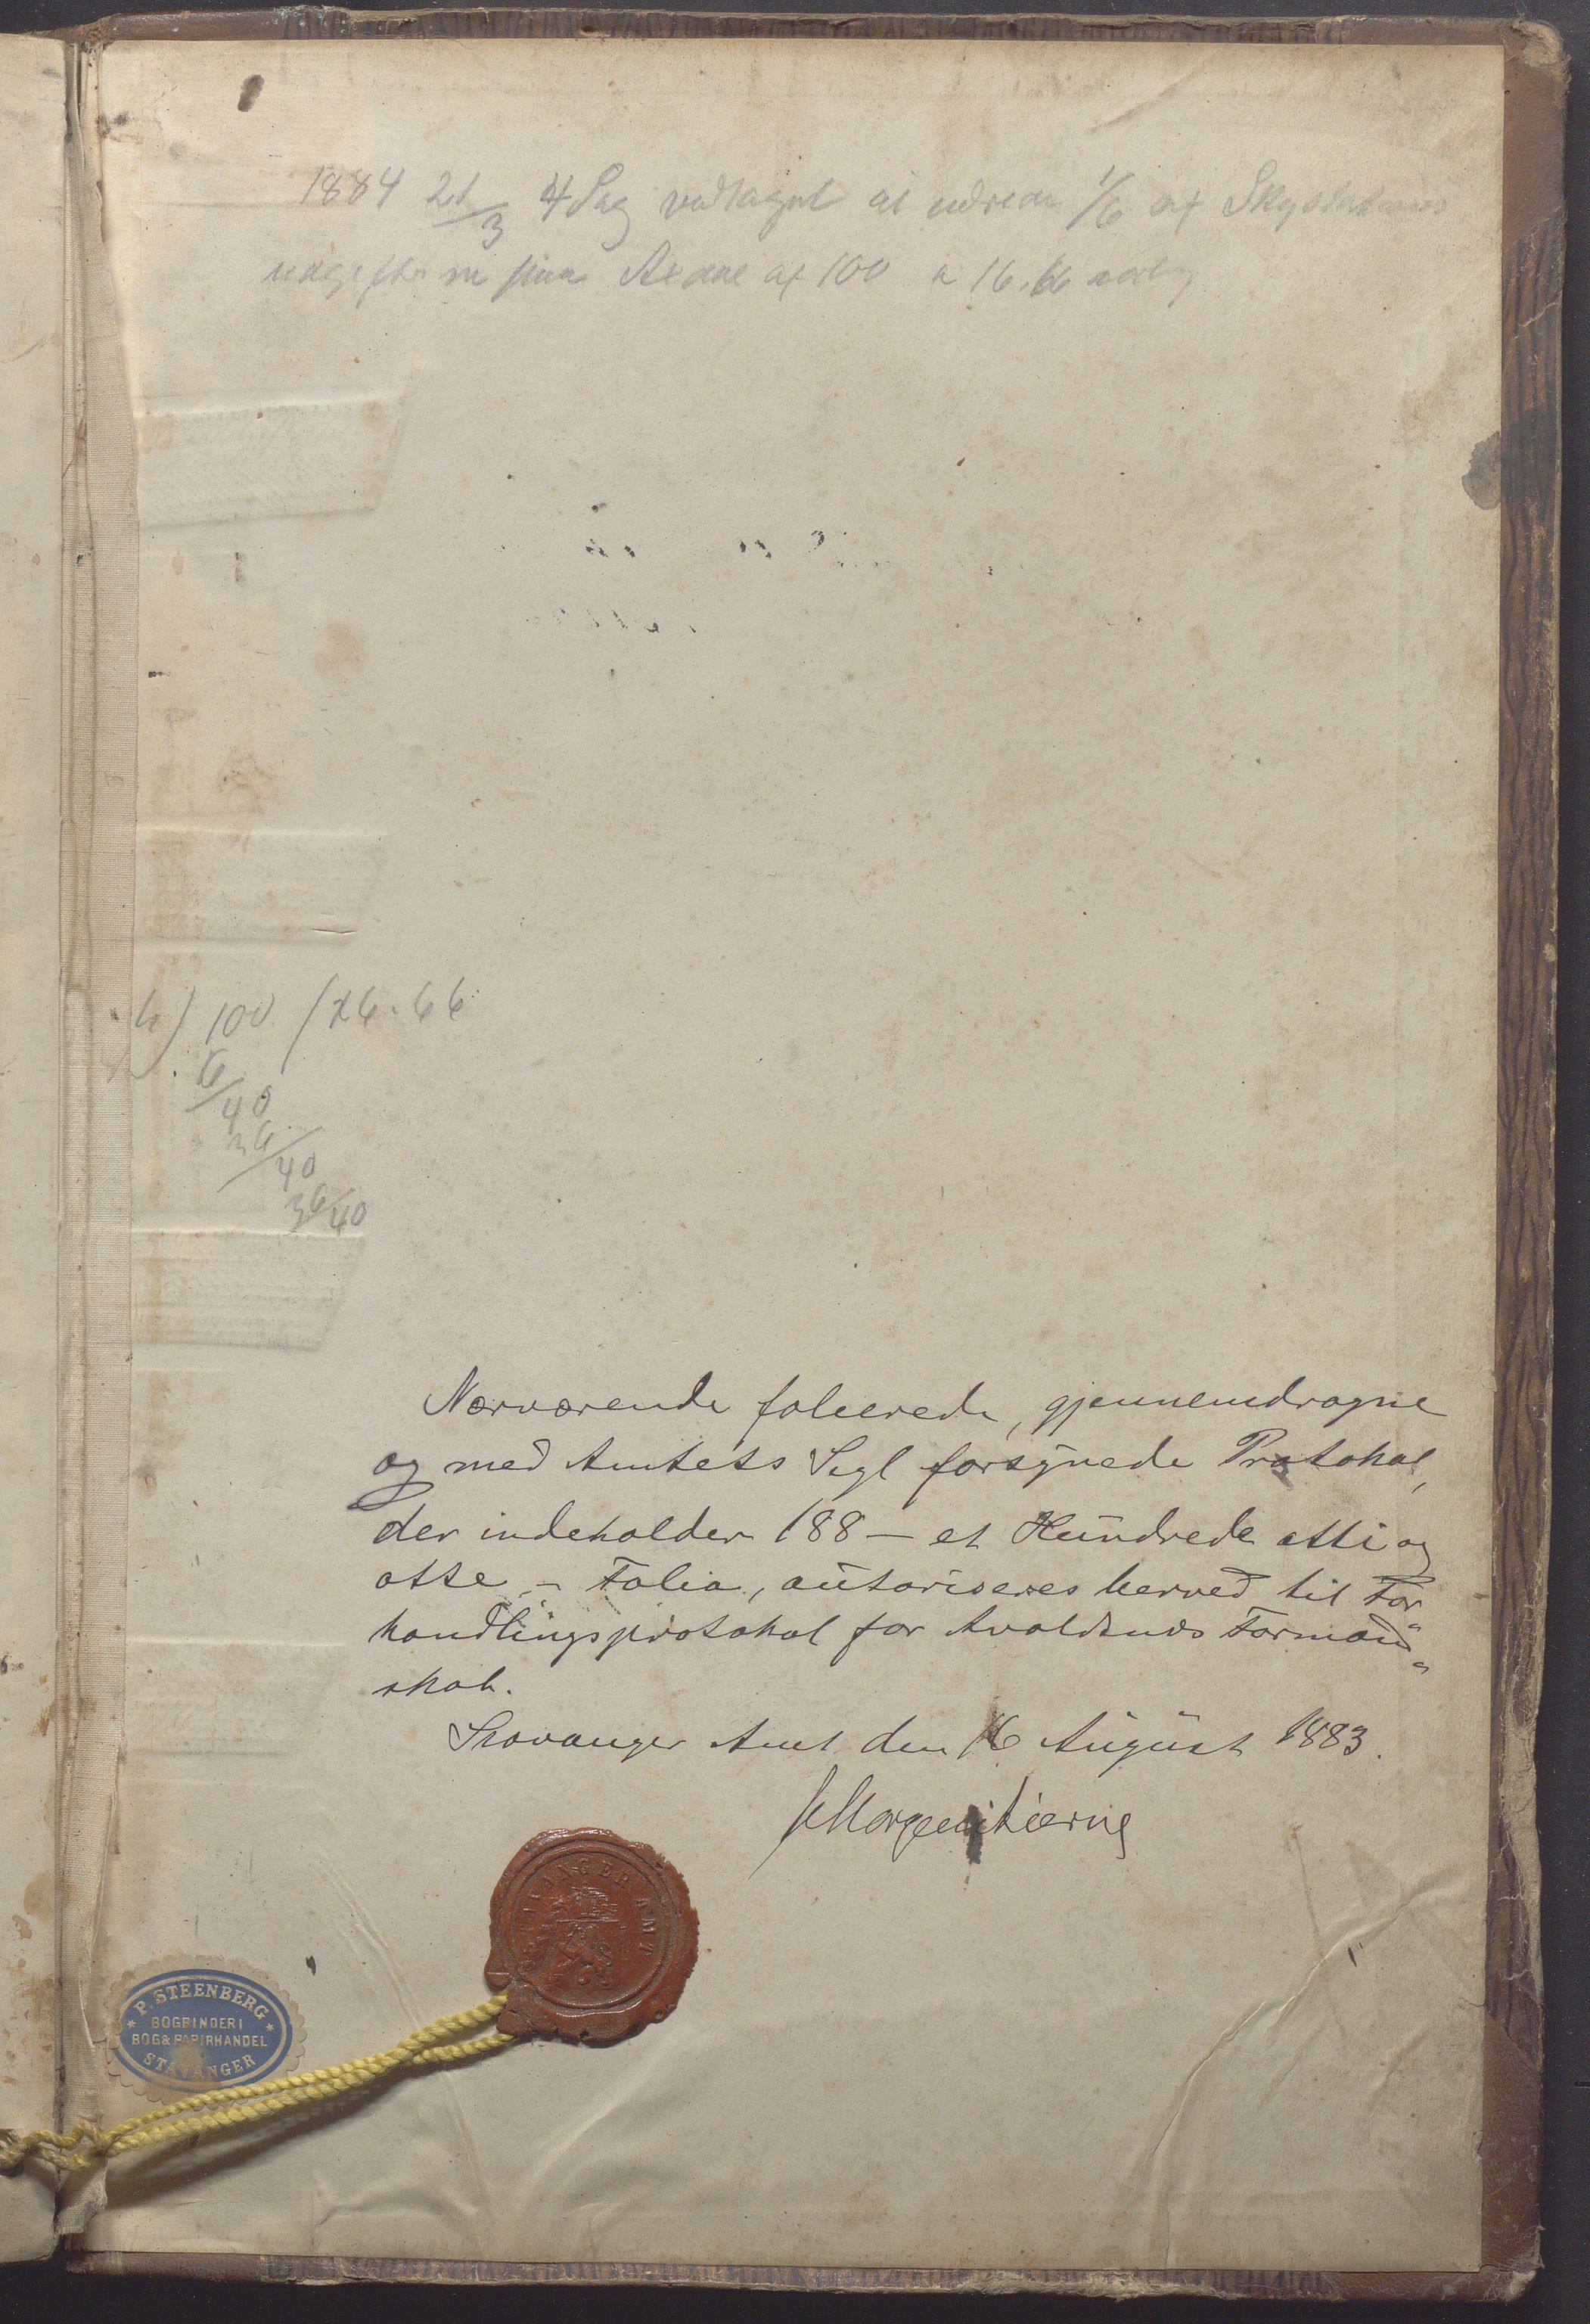 1884 21/3 4 Sag vedtaget at udrede 1/6 af
af 100 a 16.66
6) 100 / 16.66
6
40
36
40
36
40
Nærværende folierede, gjennemdragne
og med Amtets Segl forsynede Protokol,
der indeholder 188 – et Hundrede otti og
otte – Folia, autoriseres herved til For
handlingsprotokol for Avaldsnæs Formand
skab.
Stavanger Amt den 16 August 1883.
Morgenstierne
STAVANGER AMT
P. STEENBERG
BOGBINDERI
BOG & PAPIRHANDEL
STAVANGER